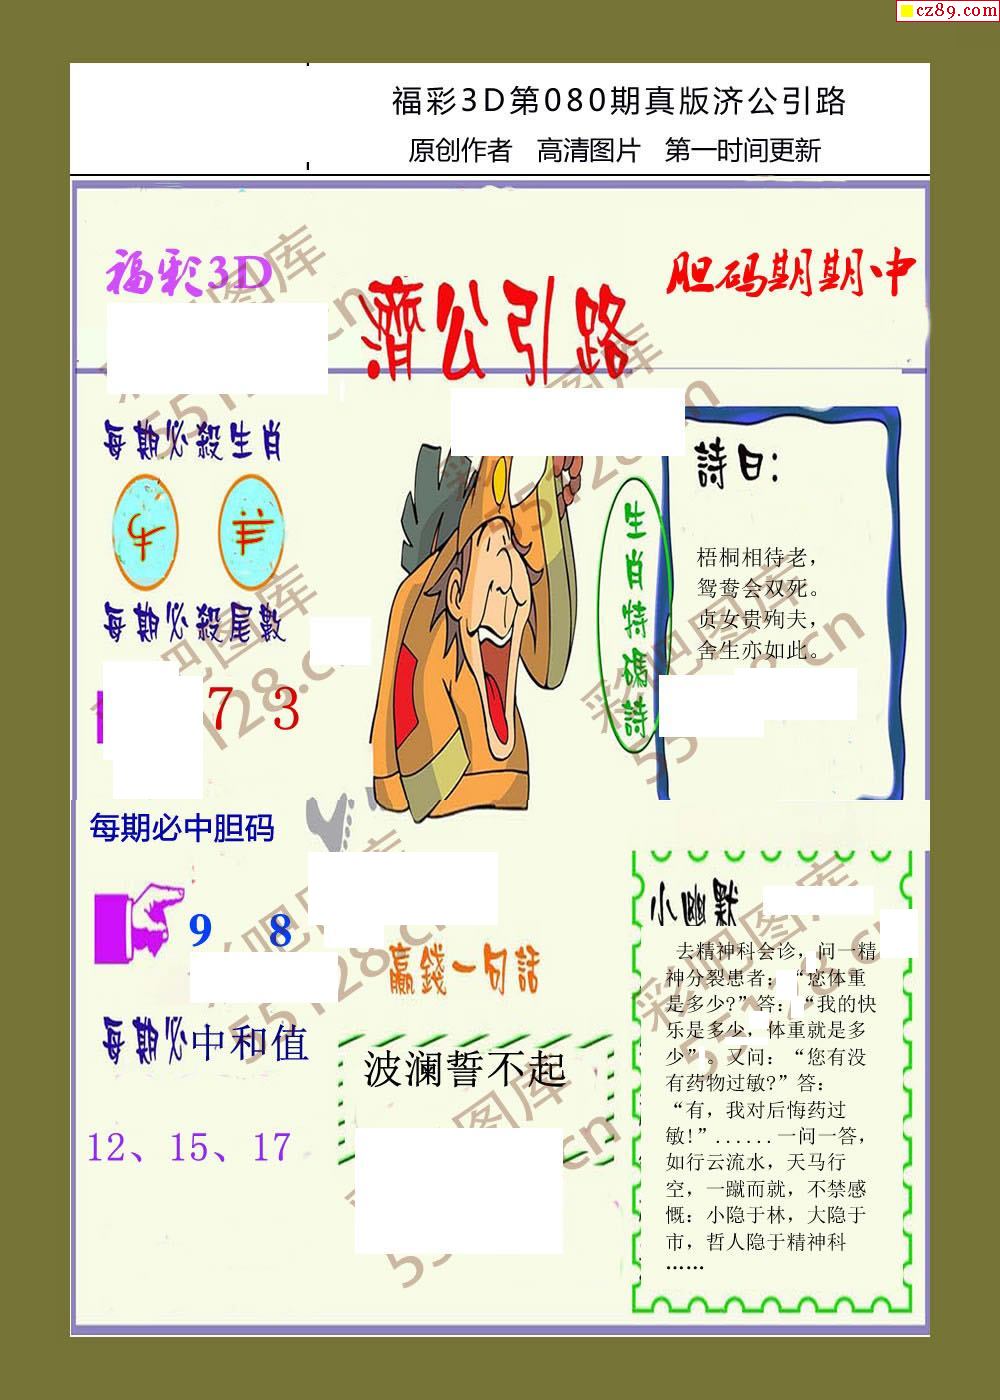 cz89.com
福彩3D第080期真版济公引路
原创作者 高清图片 第一时间更新
福彩3D
濟公引路
胆码期期中
每期必殺生肖
牛 羊
每期必殺尾數
7 3
每期必中胆码
9 8
每期必中和值
12、15、17
生肖特碼詩
詩曰：
梧桐相待老，
鸳鸯会双死。
贞女贵殉夫，
舍生亦如此。
赢錢一句話
波澜誓不起
小幽默
去精神科会诊，问一精
神分裂患者：“您体重
是多少？”答：“我的快
乐是多少，体重就是多
少”。又问：“您有没
有药物过敏？”答：
“有，我对后悔药过
敏！”......一问一答，
如行云流水，天马行
空，一蹴而就，不禁感
慨：小隐于林，大隐于
市，哲人隐于精神科
……
彩吧图库
55128.cn